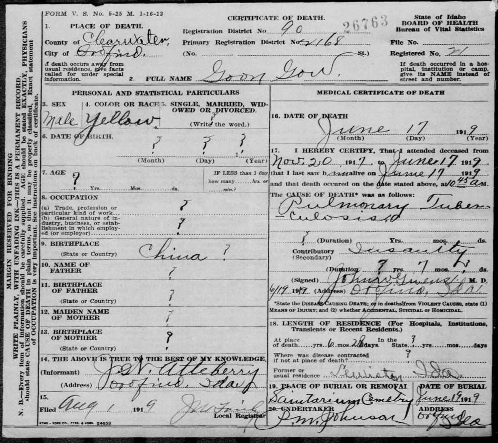 FORM V. S. No. 5-25 M. 1-16-13
CERTIFICATE OF DEATH
26763
State of Idaho
BOARD OF HEALTH
Bureau of Vital Statistics
1. PLACE OF DEATH
County of Clearwater
City of Orofino
Registration District No. 90
Primary Registration District No. 2168
(No. St.)
File No.
Registered No. 21
(If death occurs away from
usual residence, give facts
called for under special
information.)
2. FULL NAME Goon Gow
(If death occurred in a hos-
pital, institution or camp
give its NAME instead of
street and number.)
PERSONAL AND STATISTICAL PARTICULARS
3. SEX 4. COLOR OR RACE 5. SINGLE, MARRIED, WID-
OWED OR DIVORCED.
Male Yellow ?
(Write the word.)
6. DATE OF BIRTH
? ? ?
(Month) (Day) (Year)
7. AGE ?
IF LESS than 1 day
how many
8. OCCUPATION
(a) Trade, profession or
particular kind of work
(b) General nature of
industry, business, or estab-
lishment in which employed
or (employer)
?
9. BIRTHPLACE
(State or Country) China ?
10. NAME OF
FATHER ?
11. BIRTHPLACE
OF FATHER ?
(State or Country)
12. MAIDEN NAME
OF MOTHER ?
13. BIRTHPLACE
OF MOTHER ?
(State or Country)
14. THE ABOVE IS TRUE TO THE BEST OF MY KNOWLEDGE
(Informant) J.W. Atteberry
(Address) Orofino, Idaho
15.
Filed Aug 1 1919
Local Registrar
MEDICAL CERTIFICATE OF DEATH
16. DATE OF DEATH
June 17 1919
(Month) (Day) (Year)
17. I HEREBY CERTIFY, That I attended deceased from
Nov 20 1917 to June 17 1919
that I last saw him alive on June 17 1919
and that death occurred on the date stated above, at
The CAUSE OF DEATH* was as follows:
Pulmonary Tuber
culosis
? (Duration) Yrs. mos. ds.
Contributory Insanity
(Secondary)
(Duration) ? Yrs. ? mos. ? ds.
(Signed) John W. Givens M. D.
6/19 1919 (Address) Orofino, Ida
*State the DISEASE CAUSING DEATH; or in deaths from VIOLENT CAUSES, state (1)
MEANS OF INJURY; and (2) whether ACCIDENTAL, SUICIDAL or HOMICIDAL.
18. LENGTH OF RESIDENCE (For Hospitals, Institutions,
Transients or Recent Residents.)
At place In the
of death yrs. 6 mos. 28 ds. State yrs. mos. ds.
Where was disease contracted ?
if not at place of death?
Former or
usual residence Ida
19. PLACE OF BURIAL OR REMOVAL DATE OF BURIAL
Sanitarium Cemetery June 19 1919
20. UNDERTAKER
P.M. Johnson Orofino
Ida
MARGIN RESERVED FOR BINDING
WRITE PLAINLY, WITH UNFADING INK—THIS IS A PERMANENT RECORD.